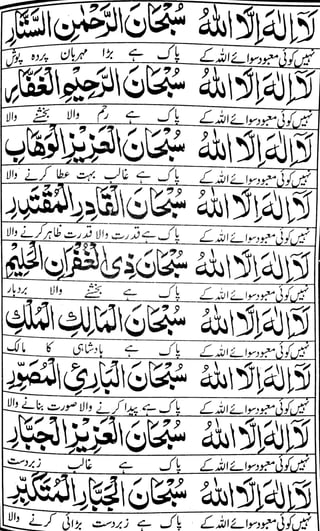 لَا اِلٰهَ اِلَّا اللهُ سُبْحَانَ الرَّحْمٰنِ السَّتَّارِ
نہیں کوئی معبود سوائے اللہ کے پاک ہے بڑا مہربان پردہ پوش
لَا اِلٰهَ اِلَّا اللهُ سُبْحَانَ الرَّحِيْمِ الْغَفَّارِ
نہیں کوئی معبود سوائے اللہ کے پاک ہے رحم والا بخشنے والا
لَا اِلٰهَ اِلَّا اللهُ سُبْحَانَ الْعَزِيْزِ الْوَهَّابِ
نہیں کوئی معبود سوائے اللہ کے پاک ہے غالب بہت عطا کرنے والا
لَا اِلٰهَ اِلَّا اللهُ سُبْحَانَ الْقَادِرِ الْمُقْتَدِرِ
نہیں کوئی معبود سوائے اللہ کے پاک ہے قدرت والا قدرت ظاہر کرنے والا
لَا اِلٰهَ اِلَّا اللهُ سُبْحَانَ ذِى الْغُفْرَانِ الْحَلِيْمِ
نہیں کوئی معبود سوائے اللہ کے پاک ہے بخشنے والا بردبار
لَا اِلٰهَ اِلَّا اللهُ سُبْحَانَ الْمَالِكِ الْمُلْكِ
نہیں کوئی معبود سوائے اللہ کے پاک ہے بادشاہی کا مالک
لَا اِلٰهَ اِلَّا اللهُ سُبْحَانَ الْبَارِئِ الْمُصَوِّرِ
نہیں کوئی معبود سوائے اللہ کے پاک ہے پیدا کرنے والا صورت بنانے والا
لَا اِلٰهَ اِلَّا اللهُ سُبْحَانَ الْعَزِيْزِ الْجَبَّارِ
نہیں کوئی معبود سوائے اللہ کے پاک ہے غالب زبردست
لَا اِلٰهَ اِلَّا اللهُ سُبْحَانَ الْجَبَّارِ الْمُتَكَبِّرِ
نہیں کوئی معبود سوائے اللہ کے پاک ہے زبردست بڑائی کرنے والا